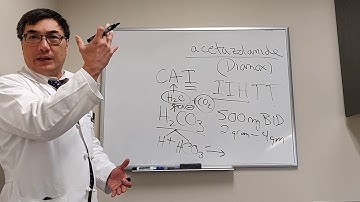 acetazolamide
(Diamox)
CAI
IIHTT
H2O
CO2
H2CO3
500mg BID
2 gram - 4 gm
H+ HCO3 →